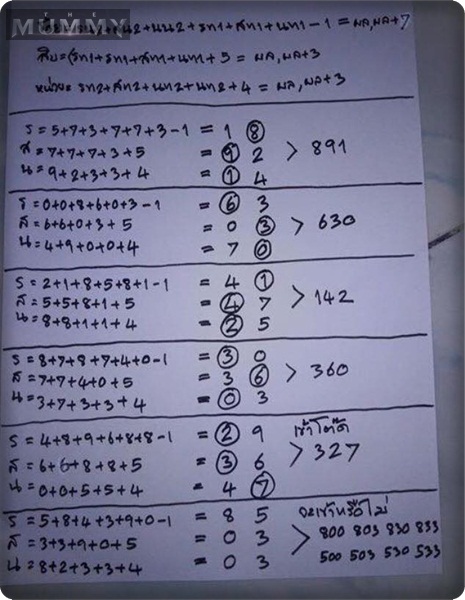 THE
MUMMY
+นน2+รท1+สท1+นท1-1 = ผล,ผล+7
สิบ=(รท1+รท1+สท1+นท1+5 = ผล,ผล+3
หน่วย= รท2+สท2+นท2+นท2+4 = ผล,ผล+3
ร = 5+7+3+7+7+3-1 = 1 8
ส = 7+7+7+3+5 = 9 2 > 891
น = 9+2+3+3+4 = 1 4
ร = 0+0+8+6+0+3-1 = 6 3
ส = 6+6+0+3+5 = 0 3 > 630
น = 4+9+0+0+4 = 7 0
ร = 2+1+8+5+8+1-1 = 4 1
ส = 5+5+8+1+5 = 4 7 > 142
น = 8+8+1+1+4 = 2 5
ร = 8+7+8+7+4+0-1 = 3 0
ส = 7+7+4+0+5 = 3 6 > 360
น = 3+7+3+3+4 = 0 3
ร = 4+8+9+6+8+8-1 = 2 9 เข้าโต๊ด
ส = 6+6+8+8+5 = 3 6 > 327
น = 0+0+5+5+4 = 4 7
ร = 5+8+4+3+9+0-1 = 8 5 จะเข้าหรือไม่
ส = 3+3+9+0+5 = 0 3 > 800 803 830 833
น = 8+2+3+3+4 = 0 3 500 503 530 533